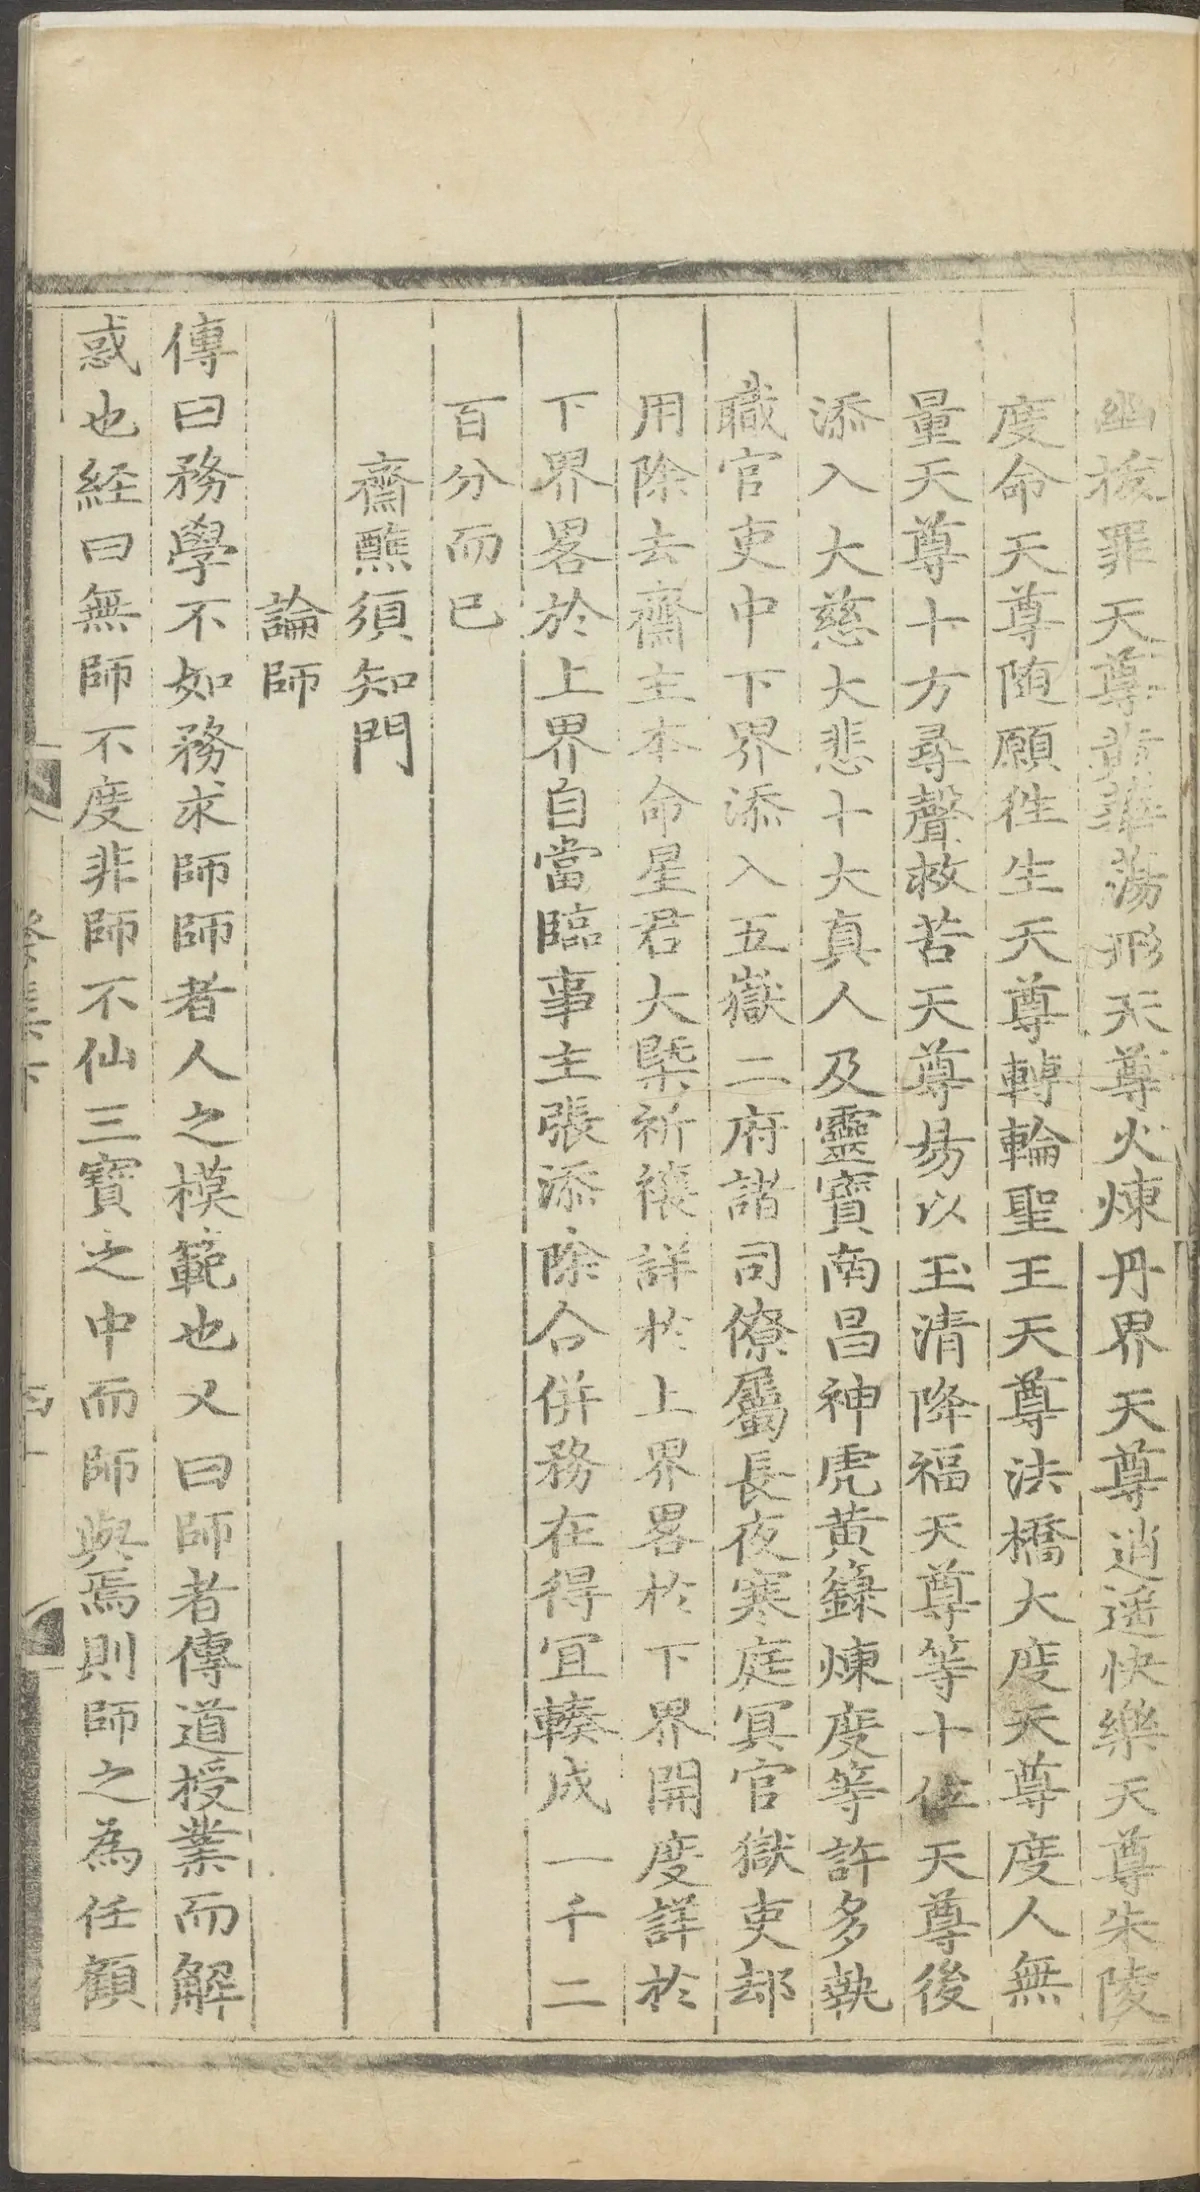 幽拔罪天尊黃華蕩形天尊火煉丹界天尊逍遥快樂天尊朱陵
度命天尊随願徃生天尊轉輪聖王天尊法橋大度天尊度人無
量天尊十方尋聲救苦天尊昜以玉清降福天尊等十位天尊後
添入大慈大悲十大真人及靈寶南昌神虎黄籙煉度等許多執
職官吏中下界添入五嶽二府諸司僚屬長夜寒庭冥官獄吏却
用除去齋主本命星君大槩祈禳詳於上界畧於下界開度詳於
下界畧於上界自當臨事主張添除合併務在得宜輳成一千二
百分而已
齋醮須知門
論師
傳曰務學不如務求師師者人之模範也又曰師者傳道授業而解
惑也経曰無師不度非師不仙三寶之中而師與焉則師之為任顧